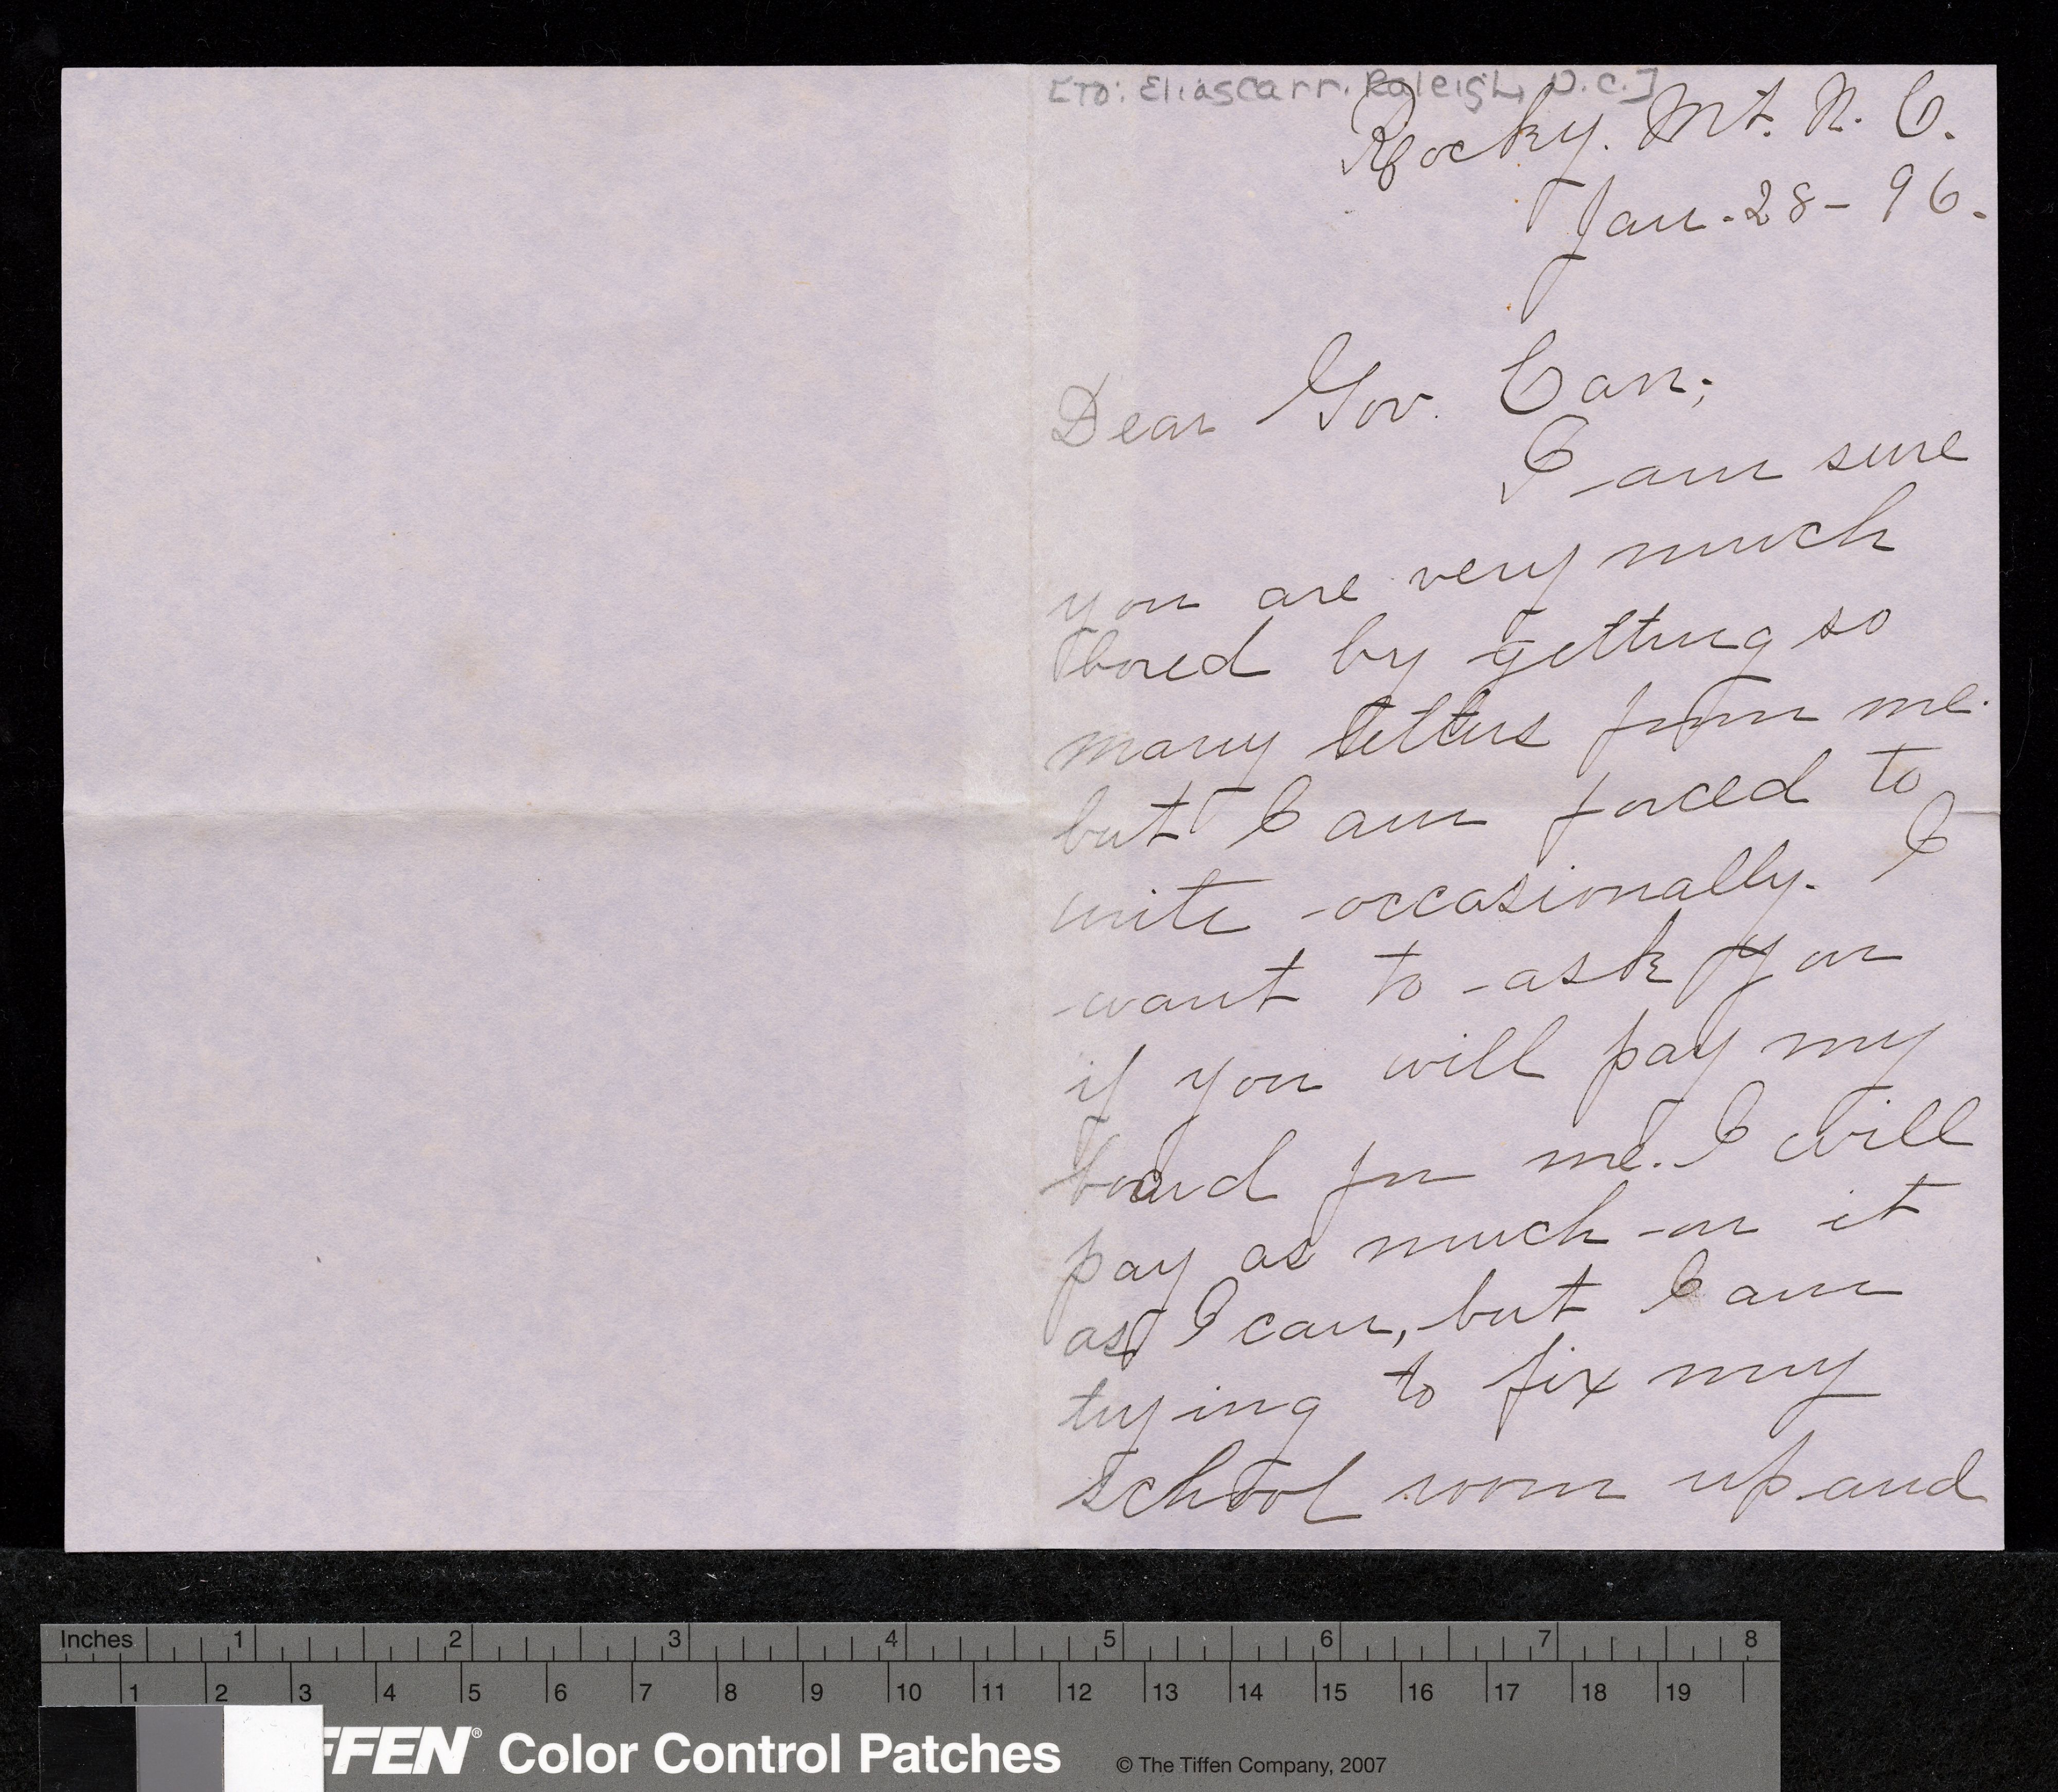 [TO: Elias Carr. Raleigh, N.C.]
Rocky. Mt. N. C.
Jan. 28 - 96.
Dear Gov. Carr;
I am sure
you are very much
bored by getting so
many letters from me.
but I am forced to
write occasionally. I
want to ask you
if you will pay my
board for me. I will
pay as much on it
as I can, but I am
trying to fix my
school room up and
Inches 1 2 3 4 5 6 7 8
1 2 3 4 5 6 7 8 9 10 11 12 13 14 15 16 17 18 19
FFEN® Color Control Patches © The Tiffen Company, 2007